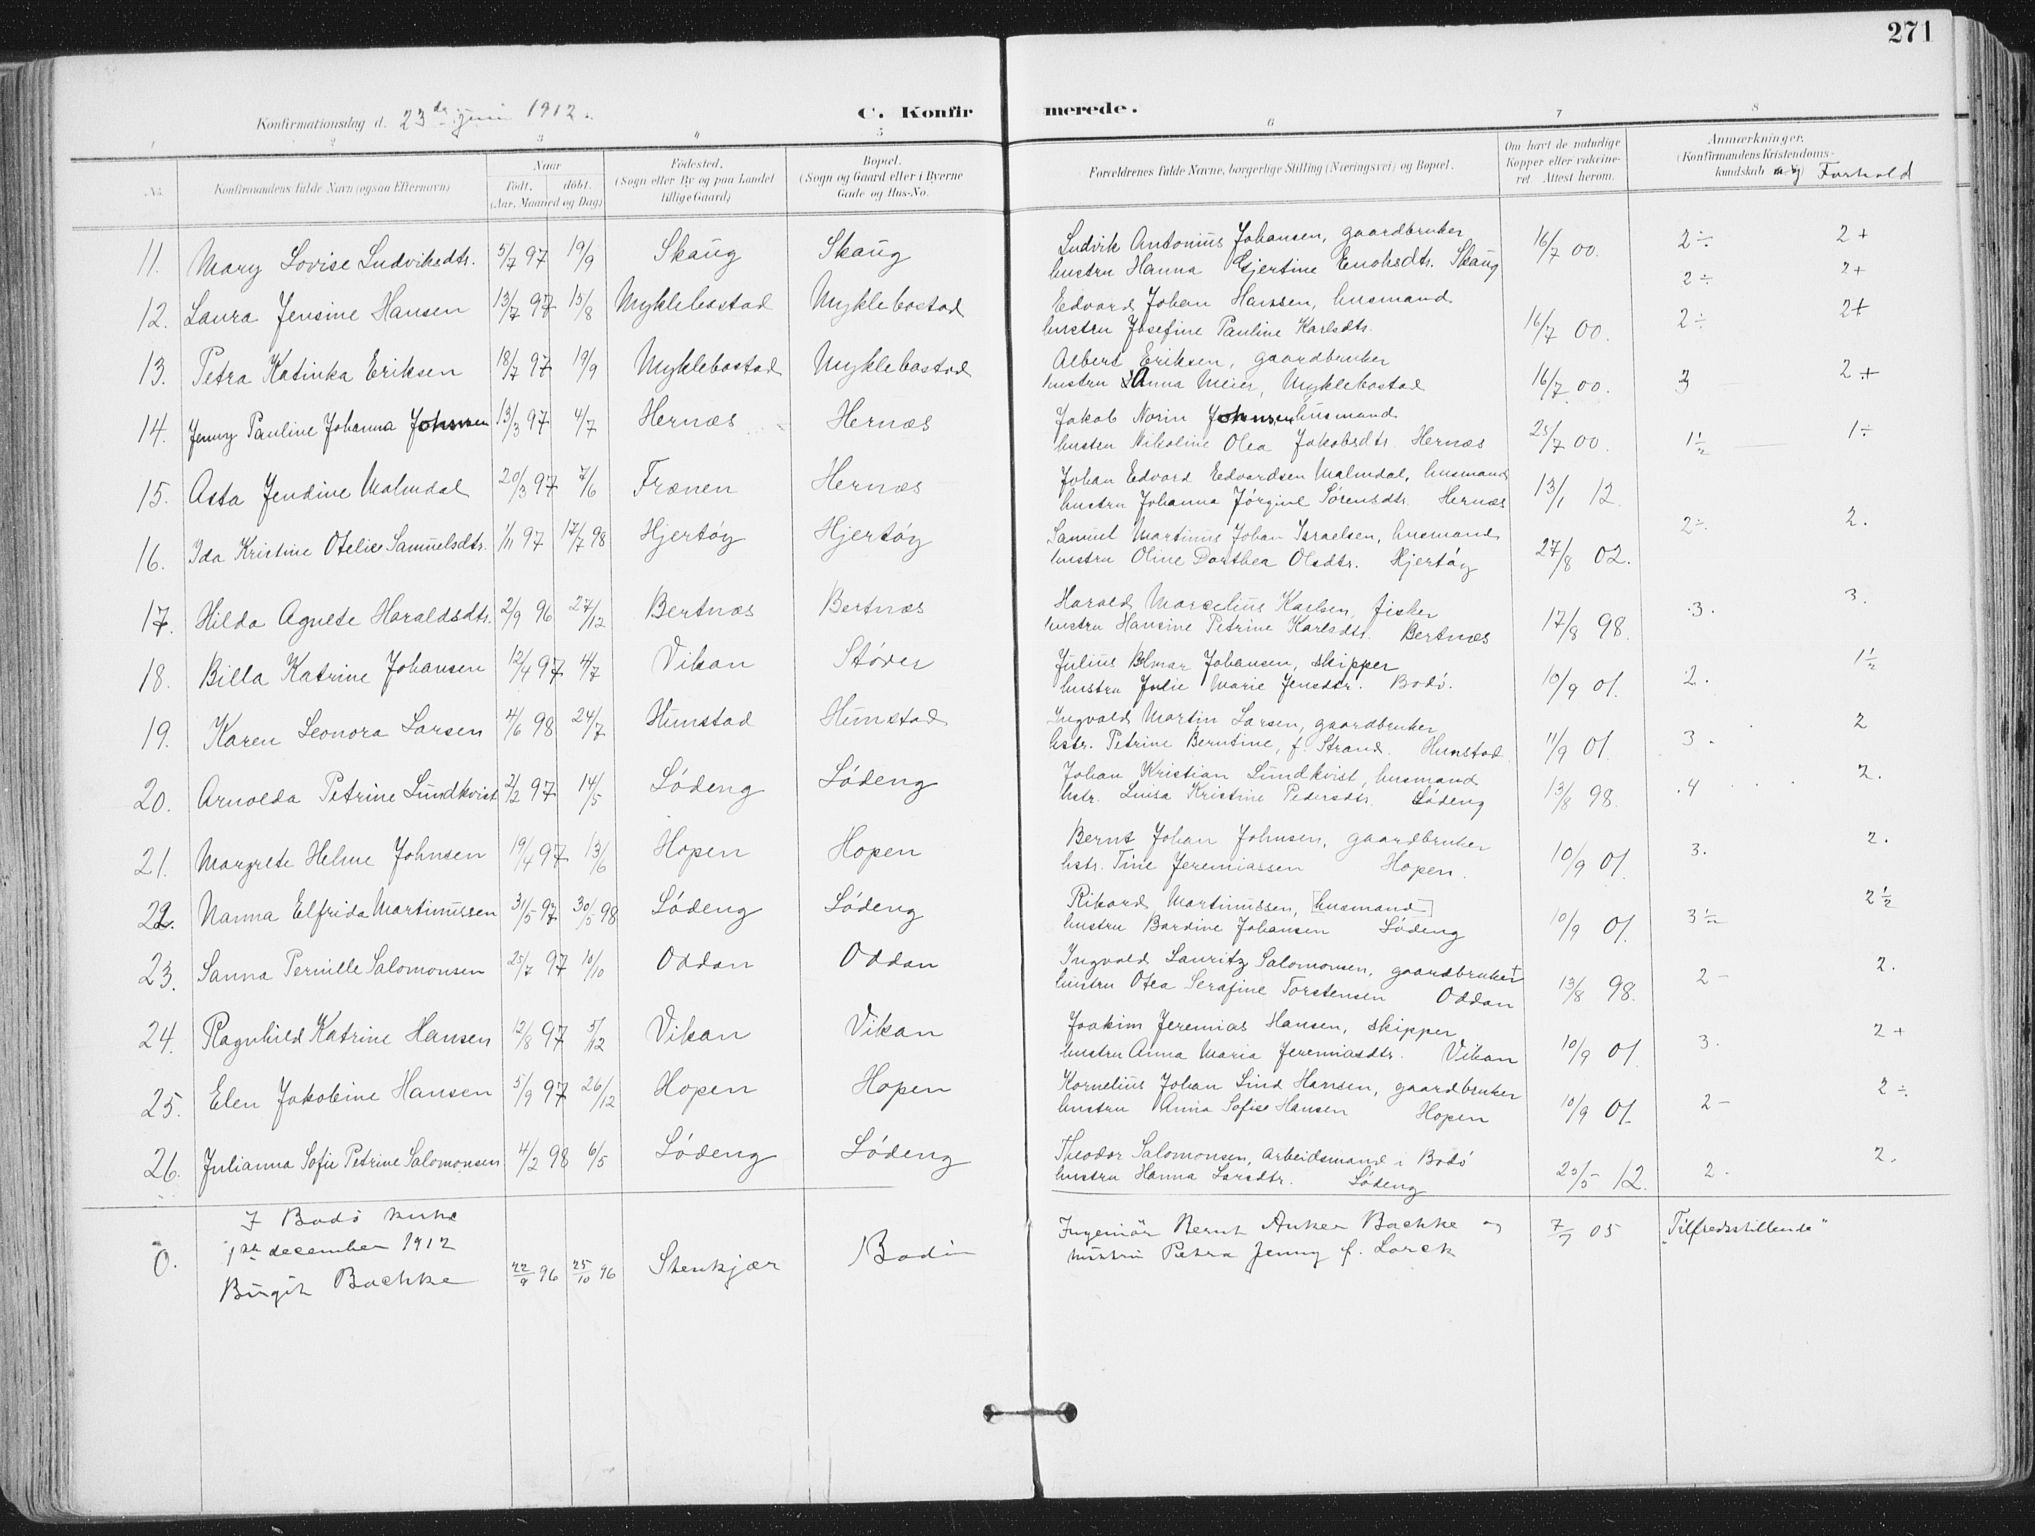 271
Konfirmationsdag d. 23de juni 1912.
C. Konfirmerede.
1 2 3 4 5 6 7 8
No. Konfirmandens fulde Navn (ogsaa Efternavn) Naar født. døbt. (Aar, Maaned og Dag) Fødested. (Sogn eller By og paa Landet tillige Gaard) Bopæl. (Sogn og Gaard eller i Byerne Gade og Hus-No. Forældrenes fulde Navne, borgerlige Stilling (Næringsvei) og Bopæl. Om havt de naturlige Kopper eller vakcineret. Attest herom. Anmærkninger. (Konfirmandens Kristendomskundskab og Forhold
11. Mary Lovise Ludviksdtr. 5/7 97 19/9 Skaug Skaug Ludvik Antonius Johansen, gaardbruker 16/7 00. 2÷ 2+
hustru Hanna Gjertine Enoksdtr. Skaug
2÷ 2+
12. Laura Jensine Hansen 13/7 97 15/8 Myklebostad Myklebostad Edvard Johan Hanssen, husmand
hustru Josefine Pauline Karlsdtr. 16/7 00. 2÷ 2+
13. Petra Katinka Eriksen 18/7 97 19/9 Myklebostad Myklebostad Albert Eriksen, gaardbruker
hustru Anna Meier, Myklebostad 16/7 00. 3 2+
14. Jenny Pauline Johanna Johnsen 13/3 97 4/7 Hernæs Hernæs Jakob Norin Johnsen husmand
hustru Nikoline Olea Jakobsdtr. Hernæs 25/7 00. 1½ 1÷
15. Asta Jendine Malmdal 20/3 97 7/6 Frænen Hernæs Johan Edvard Edvardsen Malmdal, husmand
hustru Johanna Jørgine Sørensdtr. Hernæs 13/1 12.
16. Ida Kristine Otelie Samuelsdtr. 1/11 97 17/7 98 Hjertøy Hjertøy Samuel Martinus Johan Israelsen, husmand 2÷ 2.
hustru Oline Dorthea Olsdtr. Hjertøy 27/8 02.
17. Hilda Agnete Haraldsdtr. 2/9 96 27/12 Bertnæs Bertnæs Harald Marselius Karlsen, fisker 3. 3.
hustru Hansine Petrine Karlsdtr. Bertnæs 17/8 98.
18. Billa Katrine Johansen 12/4 97 4/7 Vikan Støver Julius Johansen, skipper 1½
hustru Julie Marie Jensdtr. Bodø. 10/9 01. 2.
19. Karen Leonora Larsen 4/6 98 24/7 Hunstad Hunstad Ingvald Martin Larsen, gaardbruker 2
hstr. Petrine Berntine, f. Strand. Hunstad 11/9 01. 3.
20. Arnolda Petrine Lundkvist 2/2 97 14/5 Lødeng Lødeng Johan Kristian Lundkvist, husmand 2.
hstr. Luisa Kristine Pedersdtr. Lødeng 13/8 98. 4
21. Margrete Helene Johnsen 19/4 97 13/6 Hopen Hopen Bernt Johan Johnsen, gaardbruker 2.
hstr. Tine Jeremiassen Hopen. 10/9 01. 3.
22. Nanna Elfrida Martinussen 31/5 97 30/5 98 Lødeng Lødeng Rikard Martinussen, [husmand] 2½
hustru Bardine Johansen Lødeng 10/9 01. 3½
23. Sanna Pernille Salomonsen 25/7 97 10/10 Oddan Oddan Ingvald Lauritz Salomonsen, gaardbruker 2.
hustru Otea Serafine Torstensen Oddan 13/8 98. 2-
24. Ragnhild Katrine Hansen 12/8 97 5/12 Vikan Vikan Joakim Jeremias Hansen, skipper 2+
hustru Anna Maria Jeremiasdtr. Vikan 10/9 01. 3.
25. Elen Jakobine Hansen 5/9 97 26/12 Hopen Hopen Kornelius Johan Lind Hansen, gaardbruker 2÷
hustru Anna Sofie Hansen Hopen 10/9 01. 2-
26. Julianna Sofie Petrine Salomonsen 4/2 98 6/5 Lødeng Lødeng Theodor Salomonsen, arbeidsmand i Bodø 2.
hustru Hanna Larsdtr. Lødeng 25/5 12. 2.
I Bodø kirke
1ste december 1912
0. Birgit Bachke 22/9 96 25/10 96 Stenkjær Bodin Ingeniør Bernt Anker Bachke og 7/7 05 "Tilfredsstillende"
hustru Petra Jenny f. Lorck